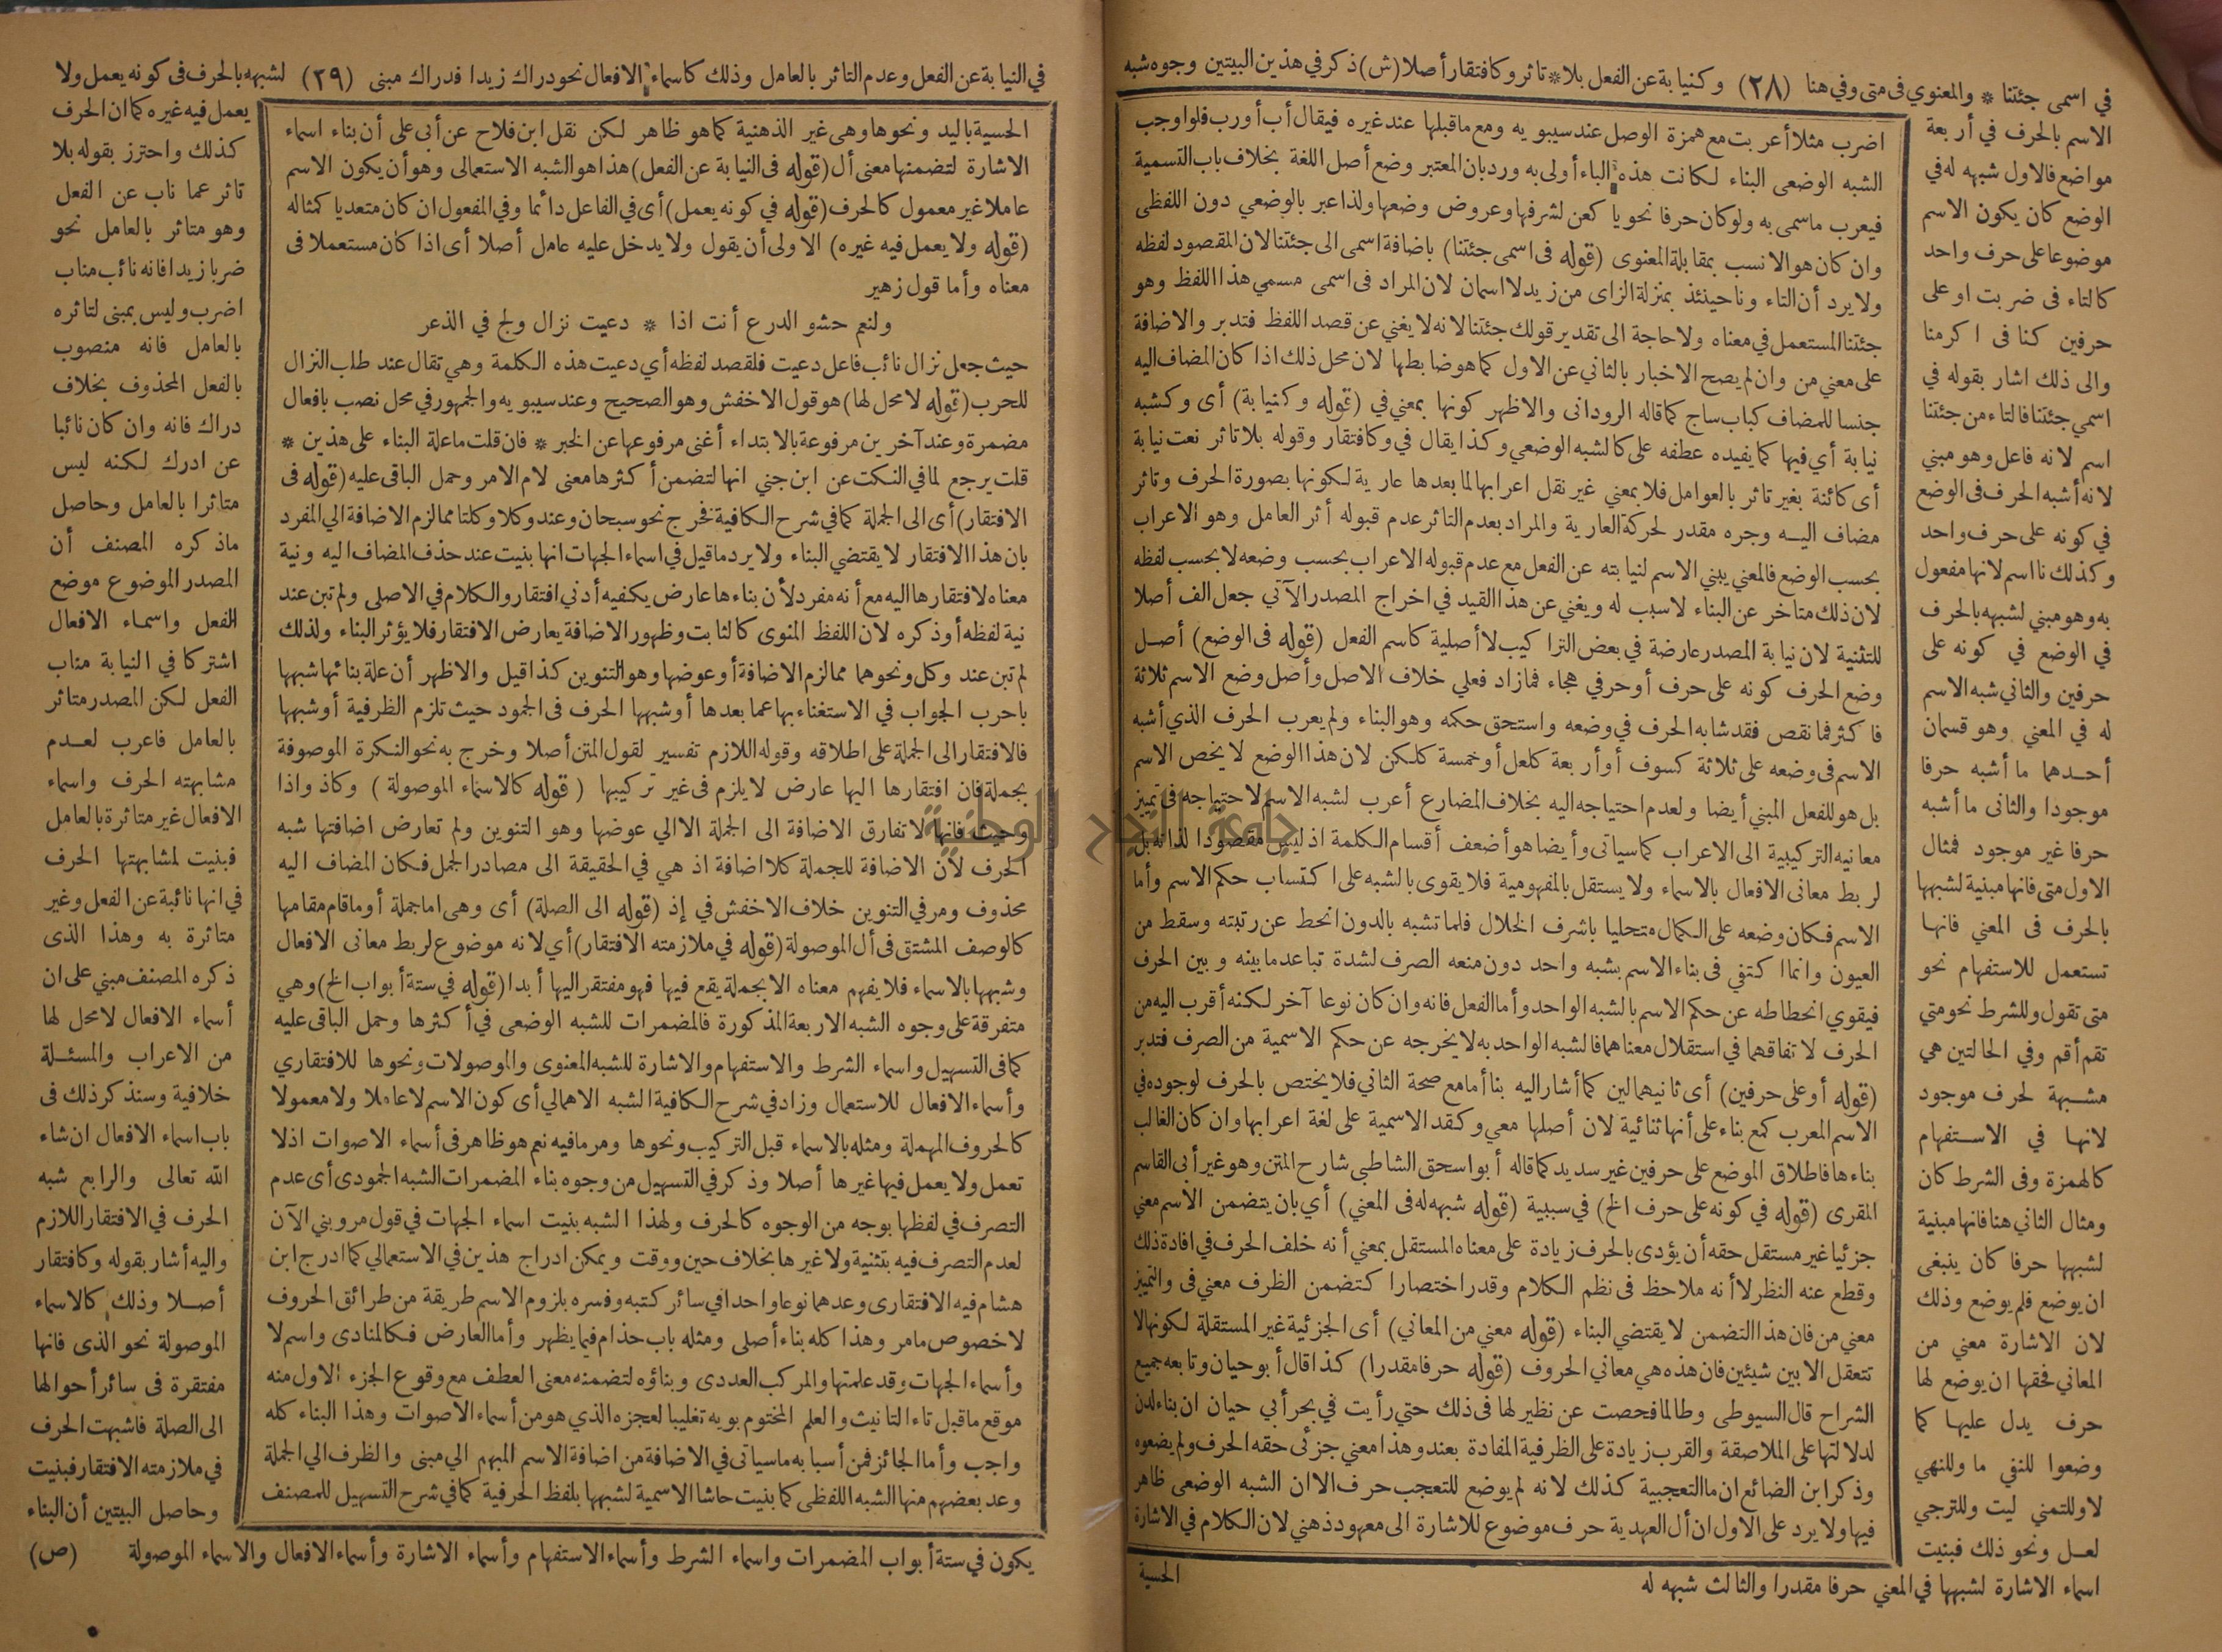 في اسمى جئتنا * والمعنوي فى متى وفي هنا (٢٨) وكنيابة عن الفعل بلا * تاثر وكافتقار أصلا (ش) ذكر في هذين البيتين وجوه شبه
الاسم بالحرف في أربعة
مواضع فالاول شبهه له في
الوضع كان يكون الاسم
موضوعا على حرف واحد
كالتاء فى ضربت او على
حرفين كنا فى اكرمنا
والى ذلك اشار بقوله في
اسمي جئتنا فالتاء من جئتنا
اسم لانه فاعل وهو مبني
لانه أشبه الحرف فى الوضع
في كونه على حرف واحد
وكذلك نا اسم لانها مفعول
به وهو مبني لشبهه بالحرف
في الوضع في كونه على
حرفين والثاني شبه الاسم
له في المعني وهو قسمان
أحدهما ما أشبه حرفا
موجودا والثانى ما أشبه
حرفا غير موجود فمثال
الاول متى فانها مبنية لشبهها
بالحرف فى المعني فانها
تستعمل للاستفهام نحو
متى تقول وللشرط نحو متي
تقم أقم وفي الحالتين هي
مشبهة لحرف موجود
لانها في الاستفهام
كالهمزة وفى الشرط كان
ومثال الثاني هنا فانها مبنية
لشبهها حرفا كان ينبغى
ان يوضع فلم يوضع وذلك
لان الاشارة معني من
المعاني فحقها ان يوضع لها
حرف يدل عليها كما
وضعوا للنفي ما وللنهي
لا وللتمني ليت وللترجي
لعل ونحو ذلك فبنيت
اسماء الاشارة لشبهها في المعني حرفا مقدرا والثالث شبهه له
اضرب مثلا أعربت مع همزة الوصل عند سيبويه ومع ما قبلها عند غيره فيقال أب أورب فلو اوجب
الشبه الوضعى البناء لكانت هذه الباء أولى به ورد بان المعتبر وضع أصل اللغة بخلاف باب التسمية
فيعرب ماسمى به ولو كان حرفا نحو يا كعن لشرفها وعروض وضعها ولذا عبر بالوضعي دون اللفظى
وان كان هو الانسب بمقابلة المعنوى (قوله فى اسمى جئتنا) باضافة اسمى الى جئتنا لان المقصود لفظه
ولا يرد أن التاء ونا حينئذ بمنزلة الزاى من زيد لا اسمان لان المراد فى اسمى مسمي هذا اللفظ وهو
جئتنا المستعمل في معناه ولا حاجة الى تقدير قولك جئتنا لانه لا يغني عن قصد اللفظ فتدبر والاضافة
على معني من وان لم يصح الاخبار بالثاني عن الاول كما هو ضابطها لان محل ذلك اذا كان المضاف اليه
جنسا للمضاف كباب ساج كما قاله الرودانى والاظهر كونها بمعني في (قوله وكنيابة) أى وكشبه
نيابة أي فيها كما يفيده عطفه على كالشبه الوضعي وكذا يقال في وكافتقار وقوله بلا تاثر نعت نيابة
أى كائنة بغير تاثر بالعوامل فلا بمعني غير نقل اعرابها لما بعدها عارية لكونها بصورة الحرف وتاثر
مضاف اليه وجره مقدر لحركة العارية والمراد بعدم التاثر عدم قبوله أثر العامل وهو الاعراب
بحسب الوضع فالمعني يبني الاسم لنيابته عن الفعل مع عدم قبوله الاعراب بحسب وضعه لا بحسب لفظه
لان ذلك متاخر عن البناء لا سبب له ويغني عن هذا القيد في اخراج المصدر الآتي جعل الف أصلا
للتثنية لان نيابة المصدر عارضة في بعض التراكيب لا أصلية كاسم الفعل (قوله فى الوضع) أصل
وضع الحرف كونه على حرف أو حرفي هجاء فما زاد فعلي خلاف الاصل وأصل وضع الاسم ثلاثة
فاكثر فما نقص فقد شابه الحرف في وضعه واستحق حكمه وهو البناء ولم يعرب الحرف الذي أشبه
الاسم فى وضعه على ثلاثة كسوف أو أربعة كلعل أو خمسة كلكن لان هذا الوضع لا يخص الاسم
بل هو للفعل المبني أيضا ولعدم احتياجه اليه بخلاف المضارع أعرب لشبه الاسم لاحتياجه فى تمييز
معانيه التركيبية الى الاعراب كما سياتى وأيضا هو أضعف أقسام الكلمة اذ ليس مقصودا لذاته بل
لربط معانى الافعال بالاسماء ولا يستقل بالمفهومية فلا يقوى بالشبه على اكتساب حكم الاسم وأما
الاسم فكان وضعه على الكمال متحليا باشرف الخلال فلما تشبه بالدون انحط عن رتبته وسقط من
العيون وانما اكتفي فى بناء الاسم بشبه واحد دون منعه الصرف لشدة تباعد ما بينه وبين الحرف
فيقوي انحطاطه عن حكم الاسم بالشبه الواحد وأما الفعل فانه وان كان نوعا آخر لكنه أقرب اليه من
الحرف لاتفاقهما في استقلال معناهما فالشبه الواحد به لا يخرجه عن حكم الاسمية من الصرف فتدبر
(قوله أو على حرفين) أى ثانيهما لين كما أشار اليه بنا أما مع صحة الثاني فلا يختص بالحرف لوجوده في
الاسم المعرب كمع بناء على أنها ثنائية لان أصلها معي وكقد الاسمية على لغة اعرابها وان كان الغالب
بناءها فاطلاق الموضع على حرفين غير سديد كما قاله أبو اسحق الشاطبي شارح المتن وهو غير أبى القاسم
المقرى (قوله في كونه على حرف الخ) في سببية (قوله شبهه له فى المعني) أي بان يتضمن الاسم معني
جزئيا غير مستقل حقه أن يؤدى بالحرف زيادة على معناه المستقل بمعني أنه خلف الحرف في افادة ذلك
وقطع عنه النظر لا أنه ملاحظ فى نظم الكلام وقدر اختصارا كتضمن الظرف معني فى والتميز
معني من فان هذا التضمن لا يقتضي البناء (قوله معني من المعاني) أى الجزئية غير المستقلة لكونها لا
تتعقل الا بين شيئين فان هذه هي معاني الحروف (قوله حرفا مقدرا) كذا قال أبو حيان وتابعه جميع
الشراح قال السيوطى وطالما فحصت عن نظير لها فى ذلك حتي رأيت في بحر أبي حيان ان بناء لدن
لدلالتها على الملاصقة والقرب زيادة على الظرفية المفادة بعند وهذا معني جزئى حقه الحرف ولم يضعوه
وذكر ابن الضائع ان ما التعجبية كذلك لانه لم يوضع للتعجب حرف الا ان الشبه الوضعى ظاهر
فيها ولا يرد على الاول ان أل العهدية حرف موضوع للاشارة الى معهود ذهني لان الكلام في الاشارة
الحسية
في النيابة عن الفعل وعدم التاثر بالعامل وذلك كاسماء الافعال نحو دراك زيدا فدراك مبنى (٢٩) لشبهه بالحرف فى كونه يعمل ولا
الحسية باليد ونحوها وهى غير الذهنية كما هو ظاهر لكن نقل ابن فلاح عن أبى على أن بناء اسماء
الاشارة لتضمنها معنى أل (قوله فى النيابة عن الفعل) هذا هو الشبه الاستعمالى وهو أن يكون الاسم
عاملا غير معمول كالحرف (قوله في كونه يعمل) أى في الفاعل دائما وفي المفعول ان كان متعديا كمثاله
(قوله ولا يعمل فيه غيره) الاولى أن يقول ولا يدخل عليه عامل أصلا أى اذا كان مستعملا فى
معناه وأما قول زهير
ولنعم حشو الدرع أنت اذا * دعيت نزال ولج في الذعر
حيث جعل نزال نائب فاعل دعيت فلقصد لفظه أي دعيت هذه الكلمة وهي تقال عند طلب النزال
للحرب (قوله لا محل لها) هو قول الاخفش وهو الصحيح وعند سيبويه والجمهور في محل نصب بافعال
مضمرة وعند آخرين مرفوعة بالابتداء أغنى مرفوعها عن الخبر * فان قلت ما علة البناء على هذين *
قلت يرجع لما في النكت عن ابن جني انها لتضمن أكثرها معنى لام الامر وحمل الباقى عليه (قوله فى
الافتقار) أى الى الجملة كما في شرح الكافية فخرج نحو سبحان وعند وكلا وكلتا مما لزم الاضافة الي المفرد
بان هذا الافتقار لا يقتضي البناء ولا يرد ما قيل في اسماء الجهات انها بنيت عند حذف المضاف اليه ونية
معناه لافتقارها اليه مع أنه مفرد لأن بناءها عارض يكفيه أدني افتقار والكلام في الاصلى ولم تبن عند
نية لفظه أو ذكره لان اللفظ المنوى كالثابت وظهور الاضافة يعارض الافتقار فلا يؤثر البناء ولذلك
لم تبن عند وكل ونحوهما مما لزم الاضافة أو عوضها وهو التنوين كذا قيل والاظهر أن علة بنائها شبهها
باحرب الجواب في الاستغناء بها عما بعدها أو شبهها الحرف فى الجمود حيث تلزم الظرفية أو شبهها
فالافتقار الى الجملة على اطلاقه وقوله اللازم تفسير لقول المتن أصلا وخرج به نحو النكرة الموصوفة
بجملة فان افتقارها اليها عارض لا يلزم فى غير تركيبها (قوله كالاسماء الموصولة) وكاذ واذا
وحيث فانها لا تفارق الاضافة الى الجملة الا الي عوضها وهو التنوين ولم تعارض اضافتها شبه
الحرف لأن الاضافة للجملة كلا اضافة اذ هي في الحقيقة الى مصادر الجمل فكان المضاف اليه
محذوف ومر في التنوين خلاف الاخفش في إذ (قوله الى الصلة) أى وهى اما جملة أو ما قام مقامها
كالوصف المشتق فى أل الموصولة (قوله في ملازمته الافتقار) أي لانه موضوع لربط معانى الافعال
وشبهها بالاسماء فلا يفهم معناه الا بجملة يقع فيها فهو مفتقر اليها أبدا (قوله في ستة أبواب الخ) وهي
متفرقة على وجوه الشبه الاربعة المذكورة فالمضمرات للشبه الوضعى في أكثرها وحمل الباقى عليه
كما فى التسهيل واسماء الشرط والاستفهام والاشارة للشبه المعنوى والموصولات ونحوها للافتقاري
وأسماء الافعال للاستعمال وزاد في شرح الكافية الشبه الاهمالي أى كون الاسم لا عاملا ولا معمولا
كالحروف المهملة ومثله بالاسماء قبل التركيب ونحوها ومر ما فيه نعم هو ظاهر فى أسماء الاصوات اذ لا
تعمل ولا يعمل فيها غيرها أصلا وذكر في التسهيل من وجوه بناء المضمرات الشبه الجمودى أى عدم
التصرف في لفظها بوجه من الوجوه كالحرف ولهذا الشبه بنيت اسماء الجهات في قول مر وبني الآن
لعدم التصرف فيه بتثنية ولا غيرها بخلاف حين ووقت ويمكن ادراج هذين في الاستعمالي كما ادرج ابن
هشام فيه الافتقارى وعدهما نوعا واحدا في سائر كتبه وفسره بلزوم الاسم طريقة من طرائق الحروف
لا خصوص ما مر وهذا كله بناء أصلى ومثله باب حذام فيما يظهر وأما العارض فكالمنادى واسم لا
وأسماء الجهات وقد علمتها والمركب العددى وبناؤه لتضمنه معنى العطف مع وقوع الجزء الاول منه
موقع ما قبل تاء التانيث والعلم المختوم بويه تغليبا لعجزه الذي هو من أسماء الاصوات وهذا البناء كله
واجب وأما الجائز فمن أسبابه ما سياتى في الاضافة من اضافة الاسم المبهم الي مبنى والظرف الي الجملة
وعد بعضهم منها الشبه اللفظى كما بنيت حاشا الاسمية لشبهها بلفظ الحرفية كما في شرح التسهيل للمصنف
يعمل فيه غيره كما ان الحرف
كذلك واحترز بقوله بلا
تاثر عما ناب عن الفعل
وهو متاثر بالعامل نحو
ضربا زيدا فانه نائب مناب
اضرب وليس بمبنى لتاثره
بالعامل فانه منصوب
بالفعل المحذوف بخلاف
دراك فانه وان كان نائبا
عن ادرك لكنه ليس
متاثرا بالعامل وحاصل
ما ذكره المصنف أن
المصدر الموضوع موضع
الفعل واسماء الافعال
اشتركا في النيابة مناب
الفعل لكن المصدر متاثر
بالعامل فاعرب لعدم
مشابهته الحرف واسماء
الافعال غير متاثرة بالعامل
فبنيت لمشابهتها الحرف
في انها نائبة عن الفعل وغير
متاثرة به وهذا الذى
ذكره المصنف مبني على ان
أسماء الافعال لا محل لها
من الاعراب والمسئلة
خلافية وسنذكر ذلك فى
باب اسماء الافعال ان شاء
الله تعالى والرابع شبه
الحرف في الافتقار اللازم
واليه أشار بقوله وكافتقار
أصلا وذلك كالاسماء
الموصولة نحو الذى فانها
مفتقرة فى سائر أحوالها
الى الصلة فاشبهت الحرف
في ملازمته الافتقار فبنيت
وحاصل البيتين أن البناء
يكون في ستة أبواب المضمرات واسماء الشرط وأسماء الاستفهام وأسماء الاشارة وأسماء الافعال والاسماء الموصولة (ص)
جامعة النجاح الوطنية